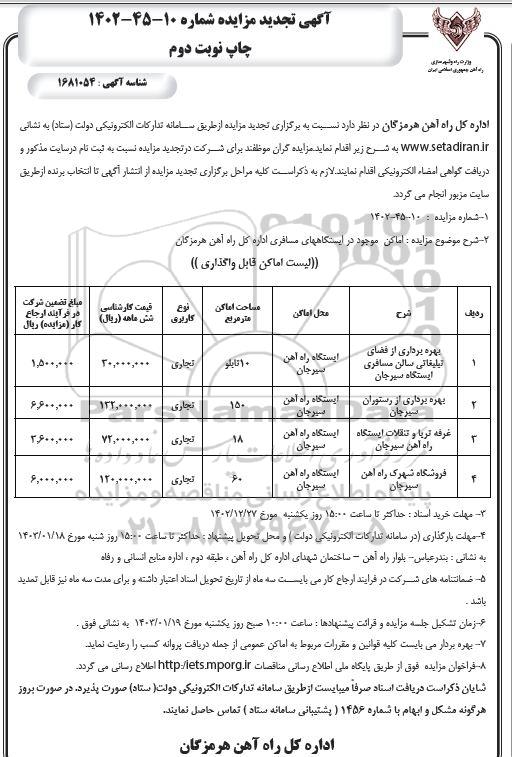 آگهی تجدید مزایده شماره ۱۰-۴۵-۱۴۰۲
چاپ نوبت دوم
وزارت راه و شهرسازی
راه آهن جمهوری اسلامی ایران
شناسه آگهی : ۱۶۸۱۰۵۴
اداره کل راه آهن هرمزگان در نظر دارد نسبت به برگزاری تجدید مزایده ازطریق سامانه تدارکات الکترونیکی دولت (ستاد) به نشانی
www.setadiran.ir به شرح زیر اقدام نماید.مزایده گران موظفند برای شرکت درتجدید مزایده نسبت به ثبت نام درسایت مذکور و
دریافت گواهی امضاء الکترونیکی اقدام نمایند.لازم به ذکراست کلیه مراحل برگزاری تجدید مزایده از انتشار آگهی تا انتخاب برنده ازطریق
سایت مزبور انجام می گردد.
۱-شماره مزایده : ۱۰-۴۵-۱۴۰۲
۲-شرح موضوع مزایده : اماکن موجود در ایستگاههای مسافری اداره کل راه آهن هرمزگان
((لیست اماکن قابل واگذاری ))
ردیف شرح محل اماکن مساحت اماکن مترمربع نوع کاربری قیمت کارشناسی شش ماهه (ریال) مبلغ تضمین شرکت در فرآیند ارجاع کار (مزایده) ریال
۱ بهره برداری از فضای تبلیغاتی سالن مسافری ایستگاه سیرجان ایستگاه راه آهن سیرجان ۱۰تابلو تجاری ۳۰,۰۰۰,۰۰۰ ۱,۵۰۰,۰۰۰
۲ بهره برداری از رستوران سیرجان ایستگاه راه آهن سیرجان ۱۵۰ تجاری ۱۳۲,۰۰۰,۰۰۰ ۶,۶۰۰,۰۰۰
۳ غرفه تریا و تنقلات ایستگاه راه آهن سیرجان ایستگاه راه آهن سیرجان ۱۸ تجاری ۷۲,۰۰۰,۰۰۰ ۳,۶۰۰,۰۰۰
۴ فروشگاه شهرک راه آهن سیرجان ایستگاه راه آهن سیرجان ۶۰ تجاری ۱۲۰,۰۰۰,۰۰۰ ۶,۰۰۰,۰۰۰
۳- مهلت خرید اسناد : حداکثر تا ساعت ۱۵:۰۰ روز یکشنبه مورخ ۱۴۰۲/۱۲/۲۷
۴-مهلت بارگذاری (در سامانه تدارکات الکترونیکی دولت ) و محل تحویل پیشنهاد : حداکثر تا ساعت ۱۵:۰۰ روز شنبه مورخ ۱۴۰۳/۰۱/۱۸
به نشانی : بندرعباس- بلوار راه آهن – ساختمان شهدای اداره کل راه آهن ، طبقه دوم ، اداره منابع انسانی و رفاه
۵- ضمانتنامه های شرکت در فرایند ارجاع کار می بایست سه ماه از تاریخ تحویل اسناد اعتبار داشته و برای مدت سه ماه نیز قابل تمدید
باشد .
۶-زمان تشکیل جلسه مزایده و قرائت پیشنهادها : ساعت ۱۰:۰۰ صبح روز یکشنبه مورخ ۱۴۰۳/۰۱/۱۹ به نشانی فوق .
۷- بهره بردار می بایست کلیه قوانین و مقررات مربوط به اماکن عمومی از جمله دریافت پروانه کسب را رعایت نماید.
۸-فراخوان مزایده فوق از طریق پایگاه ملی اطلاع رسانی مناقصات http:/iets.mporg.ir اطلاع رسانی می گردد.
شایان ذکراست دریافت اسناد صرفاً میبایست ازطریق سامانه تدارکات الکترونیکی دولت( ستاد) صورت پذیرد. در صورت بروز
هرگونه مشکل و ابهام با شماره ۱۴۵۶ ( پشتیبانی سامانه ستاد ) تماس حاصل نمایند.
اداره کل راه آهن هرمزگان
ParsNamadData
پایگاه اطلاع رسانی مناقصه و مزایده